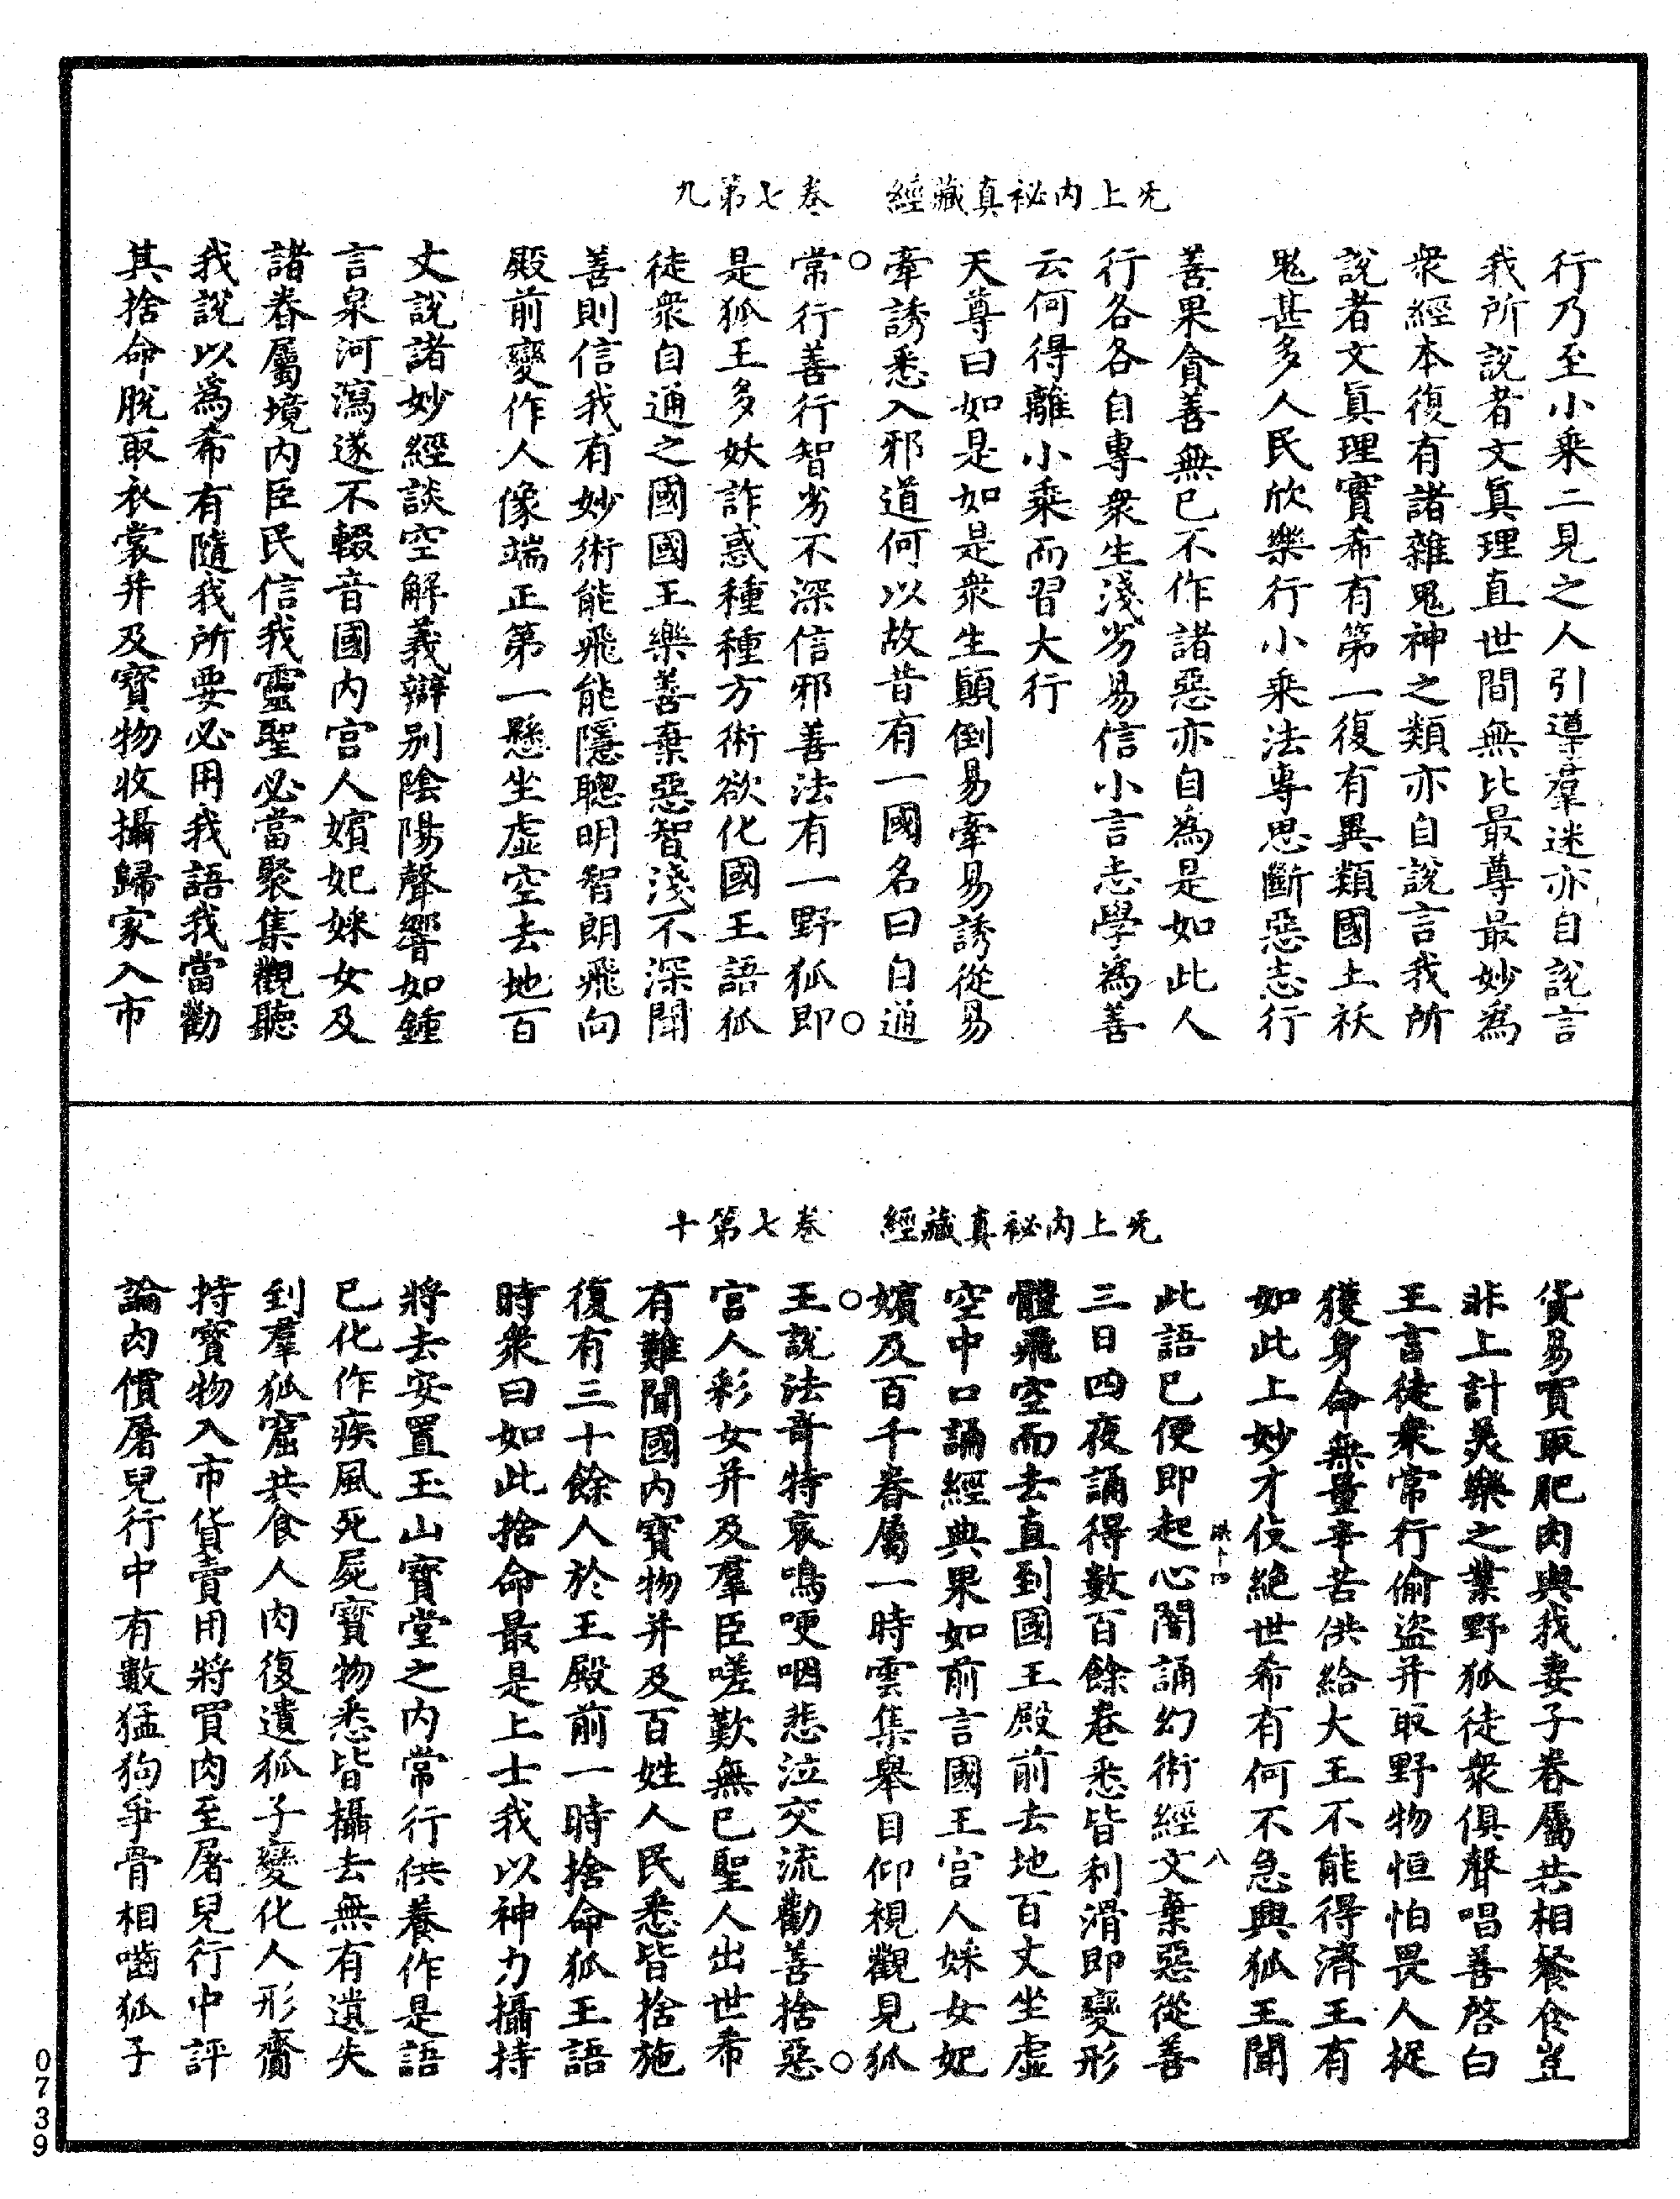 无上内祕真藏經　卷七第九
行乃至小乘二見之人引導羣迷亦自說言
我所說者文真理直世間無比最尊最妙為
衆經本復有諸雜鬼神之類亦自說言我所
說者文真理實希有第一復有異類國土祅
鬼甚多人民欣樂行小乘法專思斷惡志行
善果貪善無已不作諸惡亦自為是如此人
行各各自專衆生淺劣易信小言志學為善
云何得離小乘而習大行
天尊曰如是如是衆生顚倒易牽易誘從易
牽誘悉入邪道何以故昔有一國名曰自通
常行善行智劣不深信邪善法有一野狐即
是狐王多妖詐惑種種方術欲化國王語狐
徒衆自通之國國王樂善棄惡智淺不深聞
善則信我有妙術能飛能隱聰明智朗飛向
殿前變作人像端正第一懸坐虛空去地百
丈說諸妙經談空解義辯別陰陽聲響如鍾
言泉河瀉遂不輟音國內宮人嬪妃婇女及
諸眷屬境內臣民信我靈聖必當聚集觀聽
我說以為希有隨我所要必用我語我當勸
其捨命脫取衣裳并及寶物收攝歸家入市
无上内祕真藏經　卷七第十
貨易買取肥肉與我妻子眷屬共相餐食豈
非上計美樂之業野狐徒衆俱聲唱善啓白
王言徒衆常行偷盜并取野物恒怕畏人捉
獲身命無量辛苦供給大王不能得濟王有
如此上妙才伎絕世希有何不急興狐王聞
此語已便即起心闇誦幻術經文棄惡從善
八
三日四夜誦得數百餘卷悉皆利滑即變形
體飛空而去直到國王殿前去地百丈坐虛
空中口誦經典果如前言國王宮人婇女妃
嬪及百千眷屬一時雲集舉目仰視觀見狐
王說法音特哀鳴哽咽悲泣交流勸善捨惡
宮人彩女并及羣臣嗟歎無已聖人出世希
有難聞國內寶物并及百姓人民悉皆捨施
復有三十餘人於王殿前一時捨命狐王語
時衆曰如此捨命最是上士我以神力攝持
將去安置玉山寶堂之內常行供養作是語
已化作疾風死屍寶物悉皆攝去無有遺失
到羣狐窟共食人肉復遣狐子變化人形齎
持寶物入市貨賣用將買肉至屠兒行中評
論肉價屠兒行中有數猛狗爭骨相嚙狐子
0739